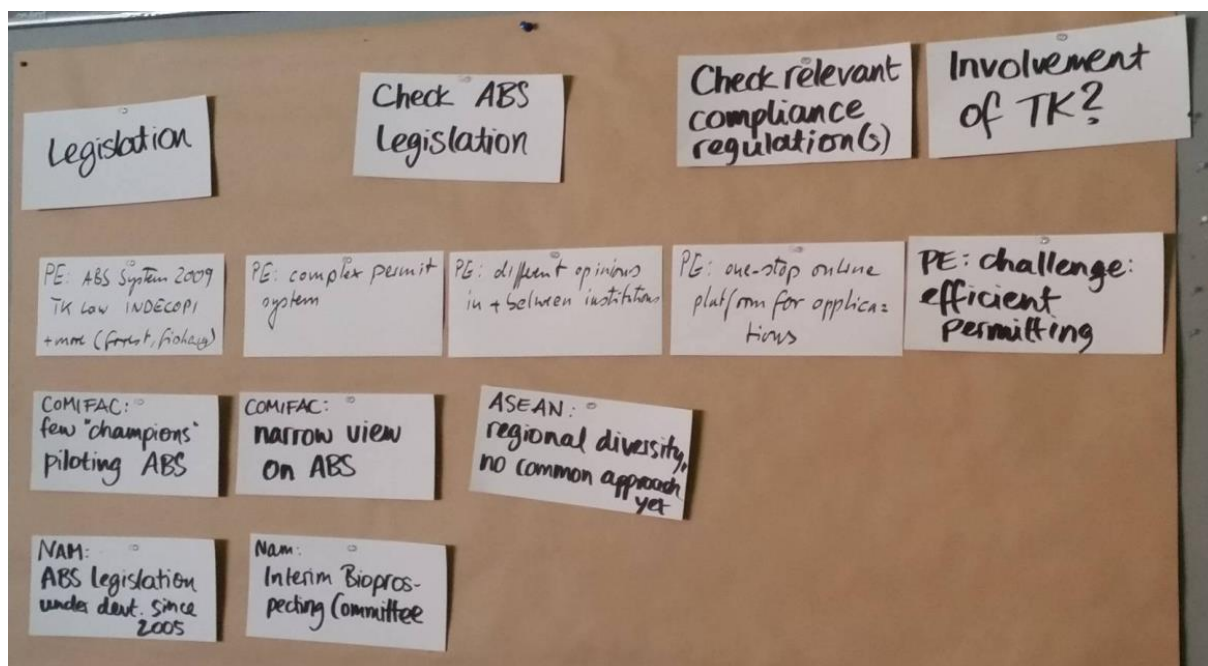 Legislation
Check ABS
Legislation
Check relevant
compliance
regulation(s)
Involvement
of TK?
PE: ABS System 2009
TK Law INDECOPI
+more (forest, fishery)
PE: complex permit
system
PE: different opinions
in + between institutions
PE: one-stop online
platform for applica=
tions
PE: challenge:
efficient
permitting
COMIFAC:
few "champions"
piloting ABS
COMIFAC:
narrow view
on ABS
ASEAN:
regional diversity,
no common approach
yet
NAM:
ABS legislation
under devt. since
2005
Nam:
Interim Biopros-
pecting Committee